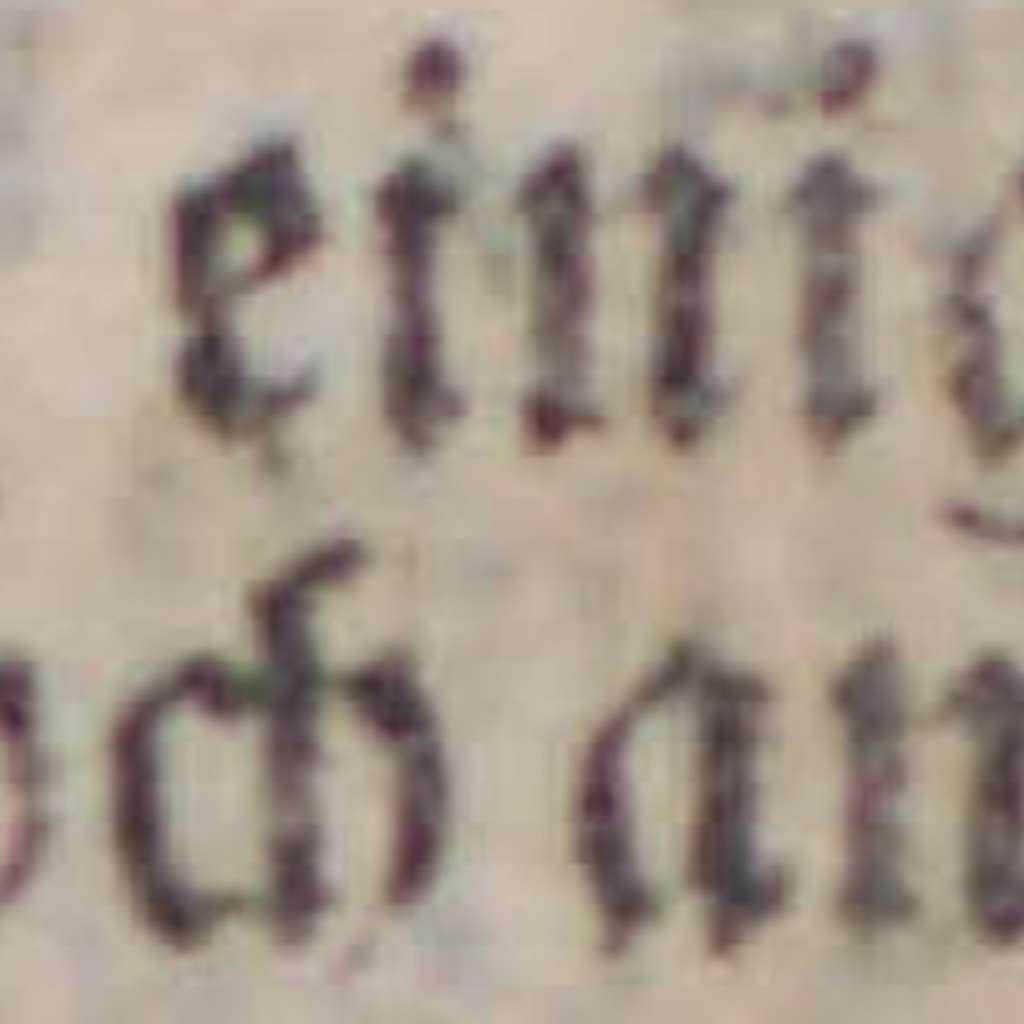 eini
ch an